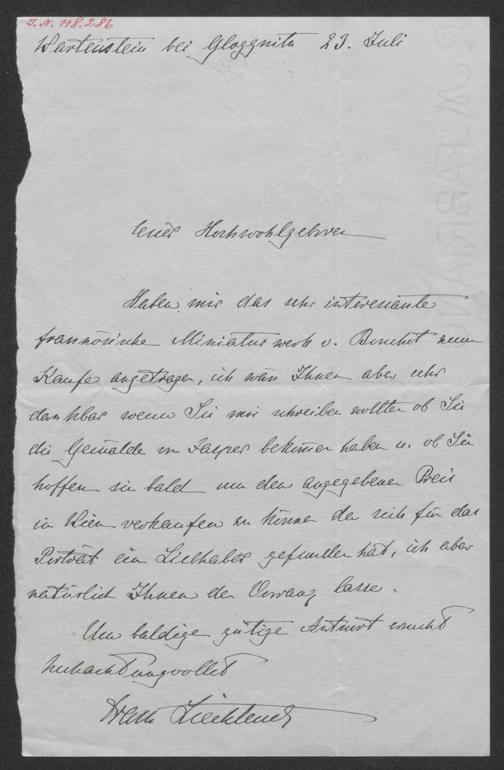 J.N. 118.286
Wartenstein bei Gloggnitz 23. Juli
Euer Hochwohlgeboren
Haben mir das sehr interessante
französische Miniaturwerk v. zum
Kaufe angetragen, ich wäre Ihnen aber sehr
dankbar wenn Sie mir schreiben wollten ob Sie
die Gemälde von bekommen haben u. ob Sie
hoffen sie bald um den angegebenen Preis
in Wien verkaufen zu können da sich für das
Porträt ein Liebhaber gefunden hat, ich aber
natürlich Ihnen den Vorrang lasse.
Um baldige gütige Antwort ersucht
hochachtungsvollst
Liechtenst